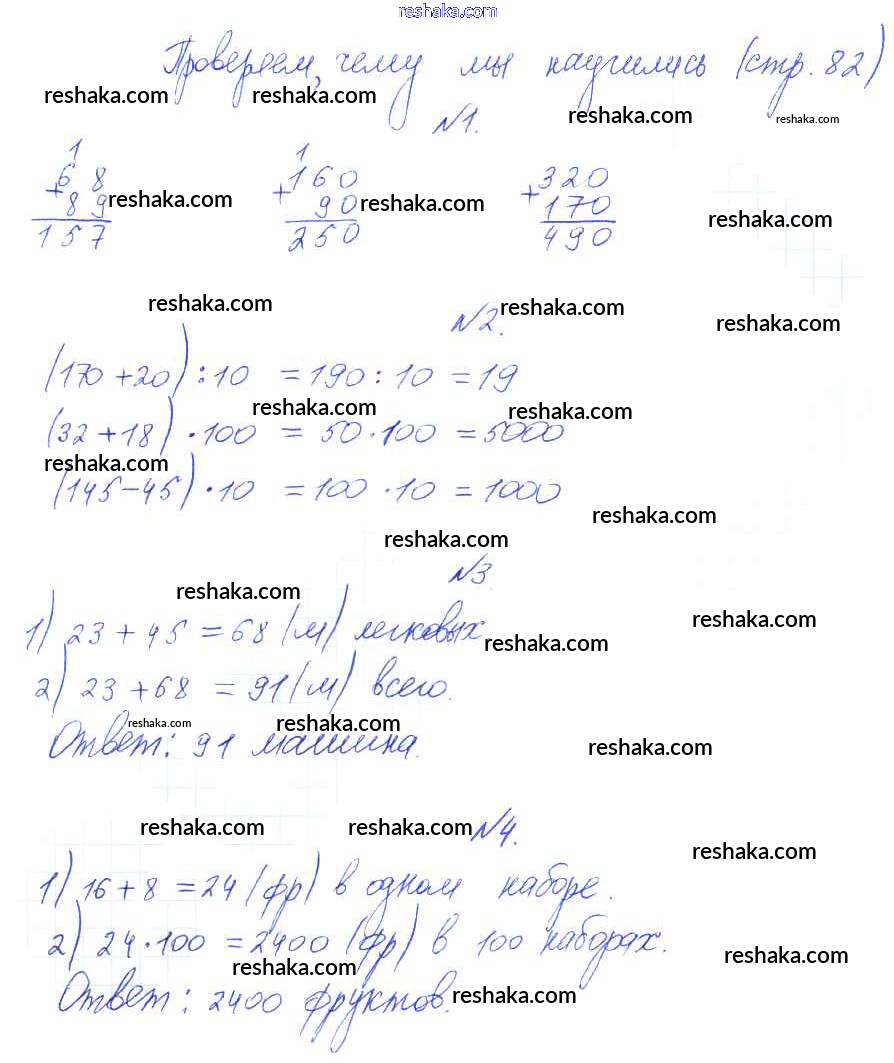 reshaka.com
Проверяем, чему мы научились (стр. 82)
reshaka.com reshaka.com reshaka.com reshaka.com
№1.
1 1
+68 +160 +320
89 reshaka.com 90 reshaka.com 170 reshaka.com
157 250 490
reshaka.com №2. reshaka.com reshaka.com
(170+20):10 =190:10 =19
reshaka.com reshaka.com
(32+18)·100 = 50·100 =5000
reshaka.com
(145-45)·10 =100·10 =1000
reshaka.com
reshaka.com
№3
reshaka.com
1) 23+45=68(м) легковых reshaka.com reshaka.com
2) 23+68 =91(м) всего.
reshaka.com reshaka.com
Ответ: 91 машина. reshaka.com
reshaka.com reshaka.com №4.
reshaka.com
1) 16+8=24(фр) в одном наборе.
2) 24·100=2400(фр) в 100 наборах.
reshaka.com reshaka.com
Ответ: 2400 фруктов. reshaka.com